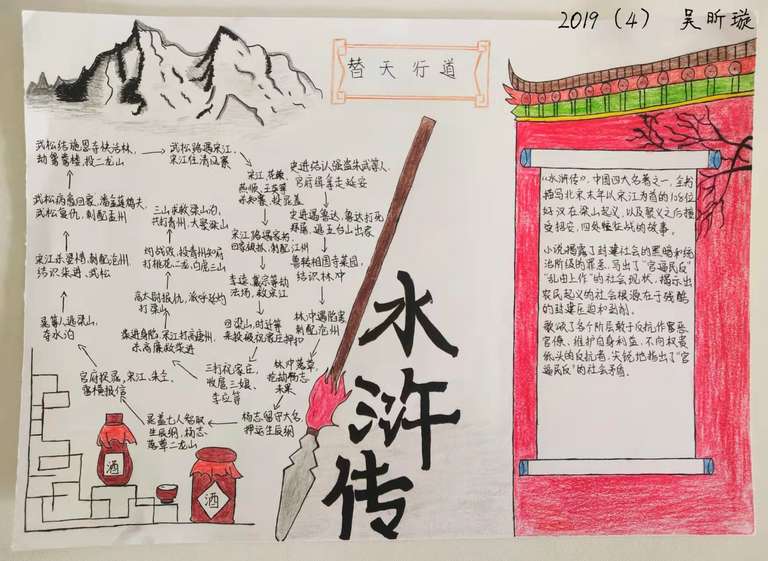 2019（4） 吴昕璇
替天行道
武松结施恩夺快活林,
劫鸳鸯楼,投二龙山
武松路遇宋江,
宋江住清风寨
宋江,花荣
史进结认强盗朱武等人,
官府得等走延安
武松病愈回家,潘金莲鸩夫,
武松复仇,刺配孟州
三山求救梁山泊,
共打青州,大聚梁山
宋江路遇家书,
回家被抓,刺配江州
史进遇鲁达,鲁达打死
郑屠,避五台山出家
宋江杀婆惜,刺配沧州,
结识柴进、武松
灼战败,投青州知府
打桃花二龙,白虎三山
李逵,戴宗等劫
法场,救宋江
鲁转相国寺菜园,
结识林冲
高太尉报仇,派呼延灼
打梁山
林冲遇陷害
刺配沧州
晁等人逃梁山,
夺水泊
柴进身陷,宋江打高唐州,
杀高廉救柴进
回梁山,时迁等
林冲落草,
未果
官府探晁,宋江、朱仝,
雷横报信
三打祝家庄,
收扈三娘,
李应等
晁盖七人智取
生辰纲,杨志,
落草二龙山
杨志留守大名,
押运生辰纲
酒
酒
水浒传
《水浒传》,中国四大名著之一,全书
描写北宋末年以宋江为首的108位
好汉在梁山起义,以及聚义之后接
受招安,四处征战的故事。
小说揭露了封建社会的黑暗和统
治阶级的罪恶,写出了"官逼民反"
"乱由上作"的社会现状,揭示出
农民起义的社会根源在于残酷
的封建压迫和剥削。
歌颂了各个阶层敢于反抗作害恶
官僚、维护自身利益,不向权贵
低头的反抗者,尖锐地指出了"官
逼民反"的社会矛盾。